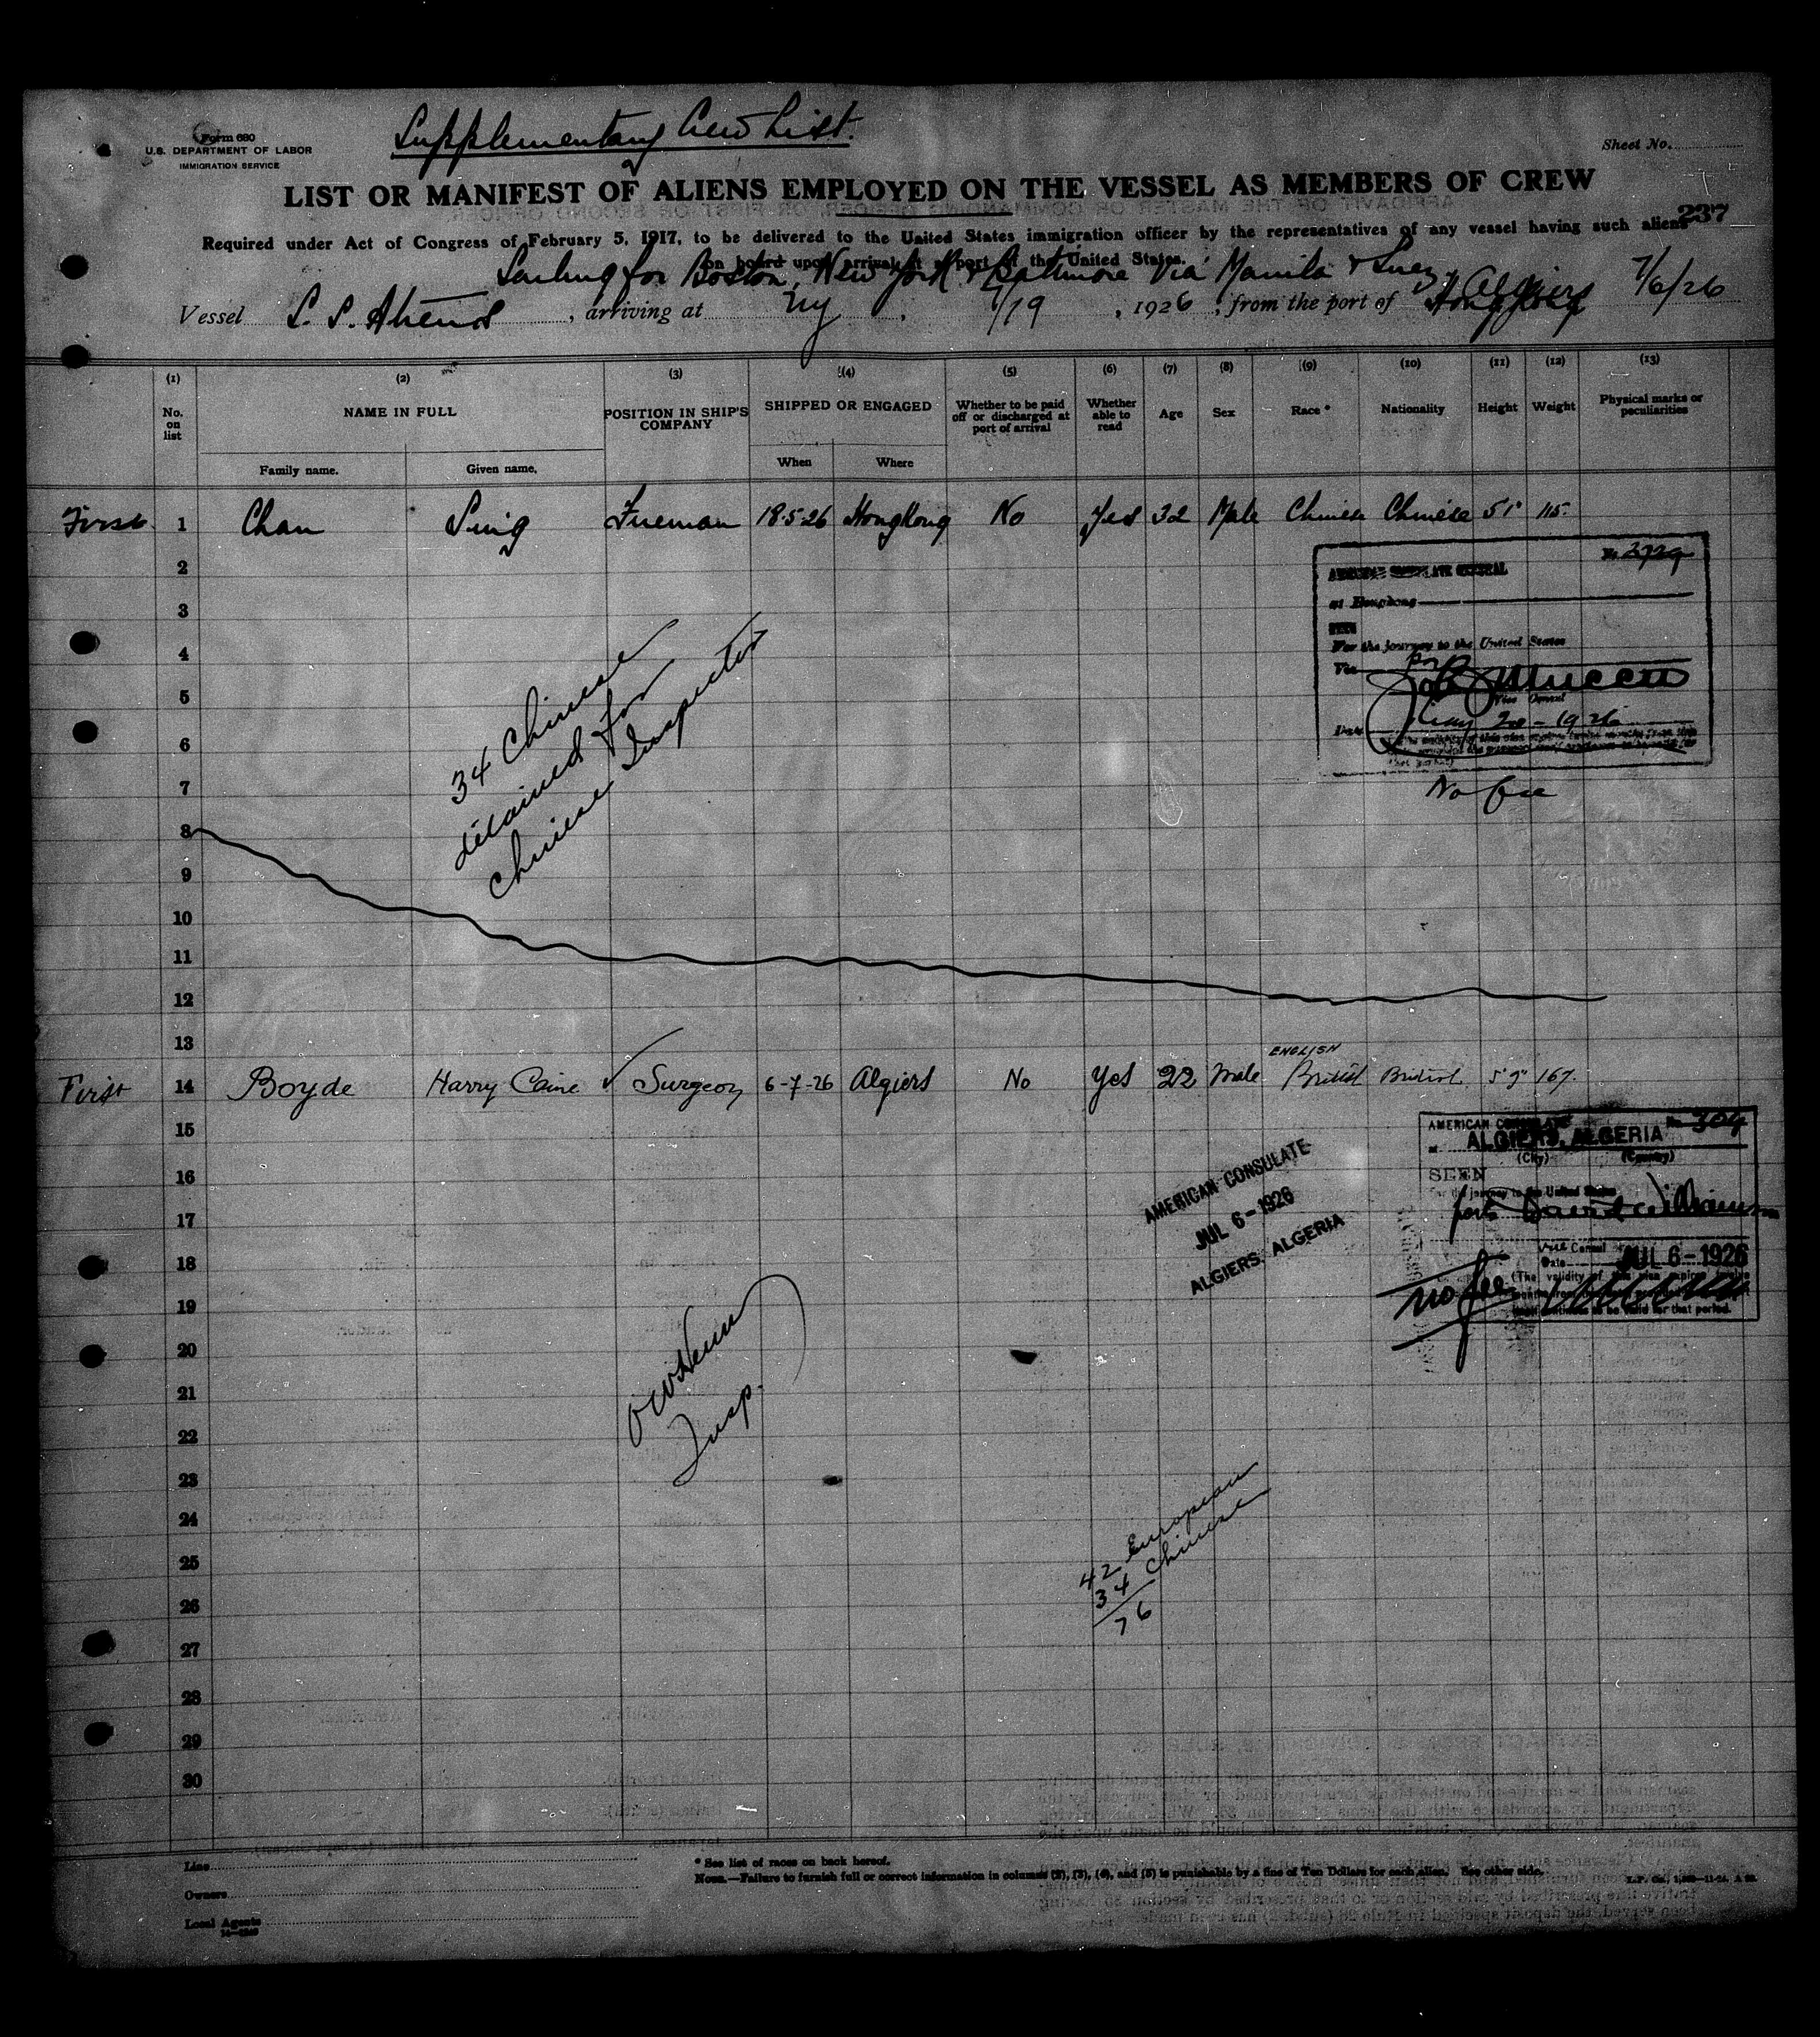 Supplementary Crew List.
Form 680
U.S. DEPARTMENT OF LABOR
IMMIGRATION SERVICE
Sheet No.
LIST OR MANIFEST OF ALIENS EMPLOYED ON THE VESSEL AS MEMBERS OF CREW
237
Required under Act of Congress of February 5, 1917, to be delivered to the United States immigration officer by the representatives of any vessel having such aliens
on board upon arrival at a port of the United States.
Sailing for Boston, New York & Baltimore via Manila & Suez
Vessel S. S. , arriving at Ny , 7/19 , 1926 , from the port of Hongkong Algiers 7/6/26
(1) (2) (3) (4) (5) (6) (7) (8) (9) (10) (11) (12) (13)
No. on list NAME IN FULL POSITION IN SHIP'S COMPANY SHIPPED OR ENGAGED Whether to be paid off or discharged at port of arrival Whether able to read Age Sex Race * Nationality Height Weight Physical marks or peculiarities
Family name. Given name. When Where
First 1 Chan Sing Fireman 18.5.26 Hongkong No Yes 32 Male Chinese Chinese 5'1" 115.
2
No. 2729
AMERICAN CONSULATE GENERAL
3
at Hongkong
SEEN
4
For the journey to the United States
Via
5
Vice Consul
6
Date May 20 - 1926
7
No fee
34 Chinese
detained for
Chinese Inspector
8
9
10
11
12
13
ENGLISH
First 14 Boyde Harry Caine Surgeon 6-7-26 Algiers No Yes 22 Male British British 5'9" 167.
15
AMERICAN CONSULATE No. 304
at ALGIERS, ALGERIA
(City) (Country)
16
SEEN
For the journey to the United States
17
David Williamson
18
Vice Consul
Date JUL 6-1926
(The validity of this visa expires
19
no fee
for that period.
AMERICAN CONSULATE
JUL 6-1926
ALGIERS, ALGERIA
20
21
22
Insp.
23
24
25
26
42 European
34 Chinese
76
27
28
29
30
Line
Owners
Local Agents
* See list of races on back hereof.
NOTE.—Failure to furnish full or correct information in columns (2), (3), (4), and (5) is punishable by a fine of Ten Dollars for each alien. See other side.